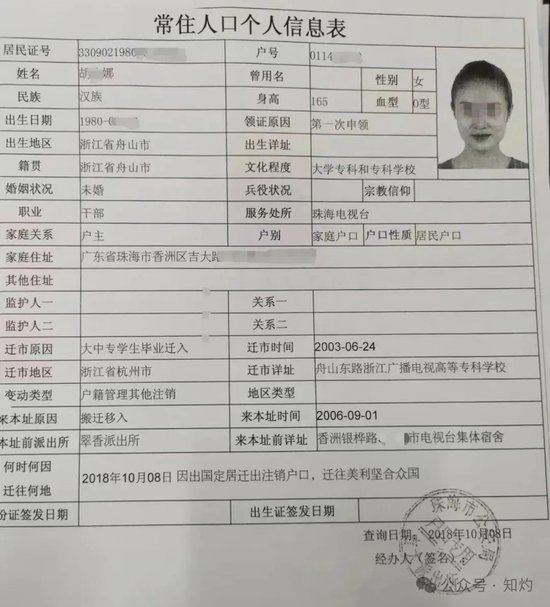 常住人口个人信息表
居民证号 330902198 户号 0114
姓名 胡 娜 曾用名 性别 女
民族 汉族 身高 165 血型 O型
出生日期 1980-0 领证原因 第一次申领
出生地区 浙江省舟山市 出生详址
籍贯 浙江省舟山市 文化程度 大学专科和专科学校
婚姻状况 未婚 兵役状况 宗教信仰
职业 干部 服务处所 珠海电视台
家庭关系 户主 户别 家庭户口 户口性质 居民户口
家庭住址 广东省珠海市香洲区吉大路
其他住址
监护人一 关系一
监护人二 关系二
迁市原因 大中专学生毕业迁入 迁市时间 2003-06-24
迁市地区 浙江省杭州市 迁市详址 舟山东路浙江广播电视高等专科学校
变动类型 户籍管理其他注销 地区类型
来本址原因 搬迁移入 来本址时间 2006-09-01
本址前派出所 翠香派出所 来本址前详址 香洲银桦路、 市电视台集体宿舍
何时何因
迁往何地 2018年10月08日 因出国定居迁出注销户口，迁往美利坚合众国
份证签发日期 出生证签发日期
查询日期：2018年10月08日
经办人（签名）
珠海市公安局
公众号·知灼